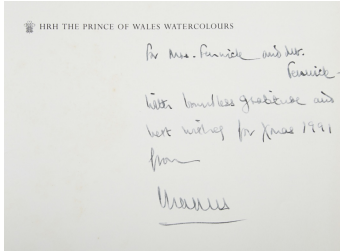 HRH THE PRINCE OF WALES WATERCOLOURS
for Mrs. Fenwick and Mr.
Fenwick -
with boundless gratitude and
best wishes for Xmas 1991
from
Charles